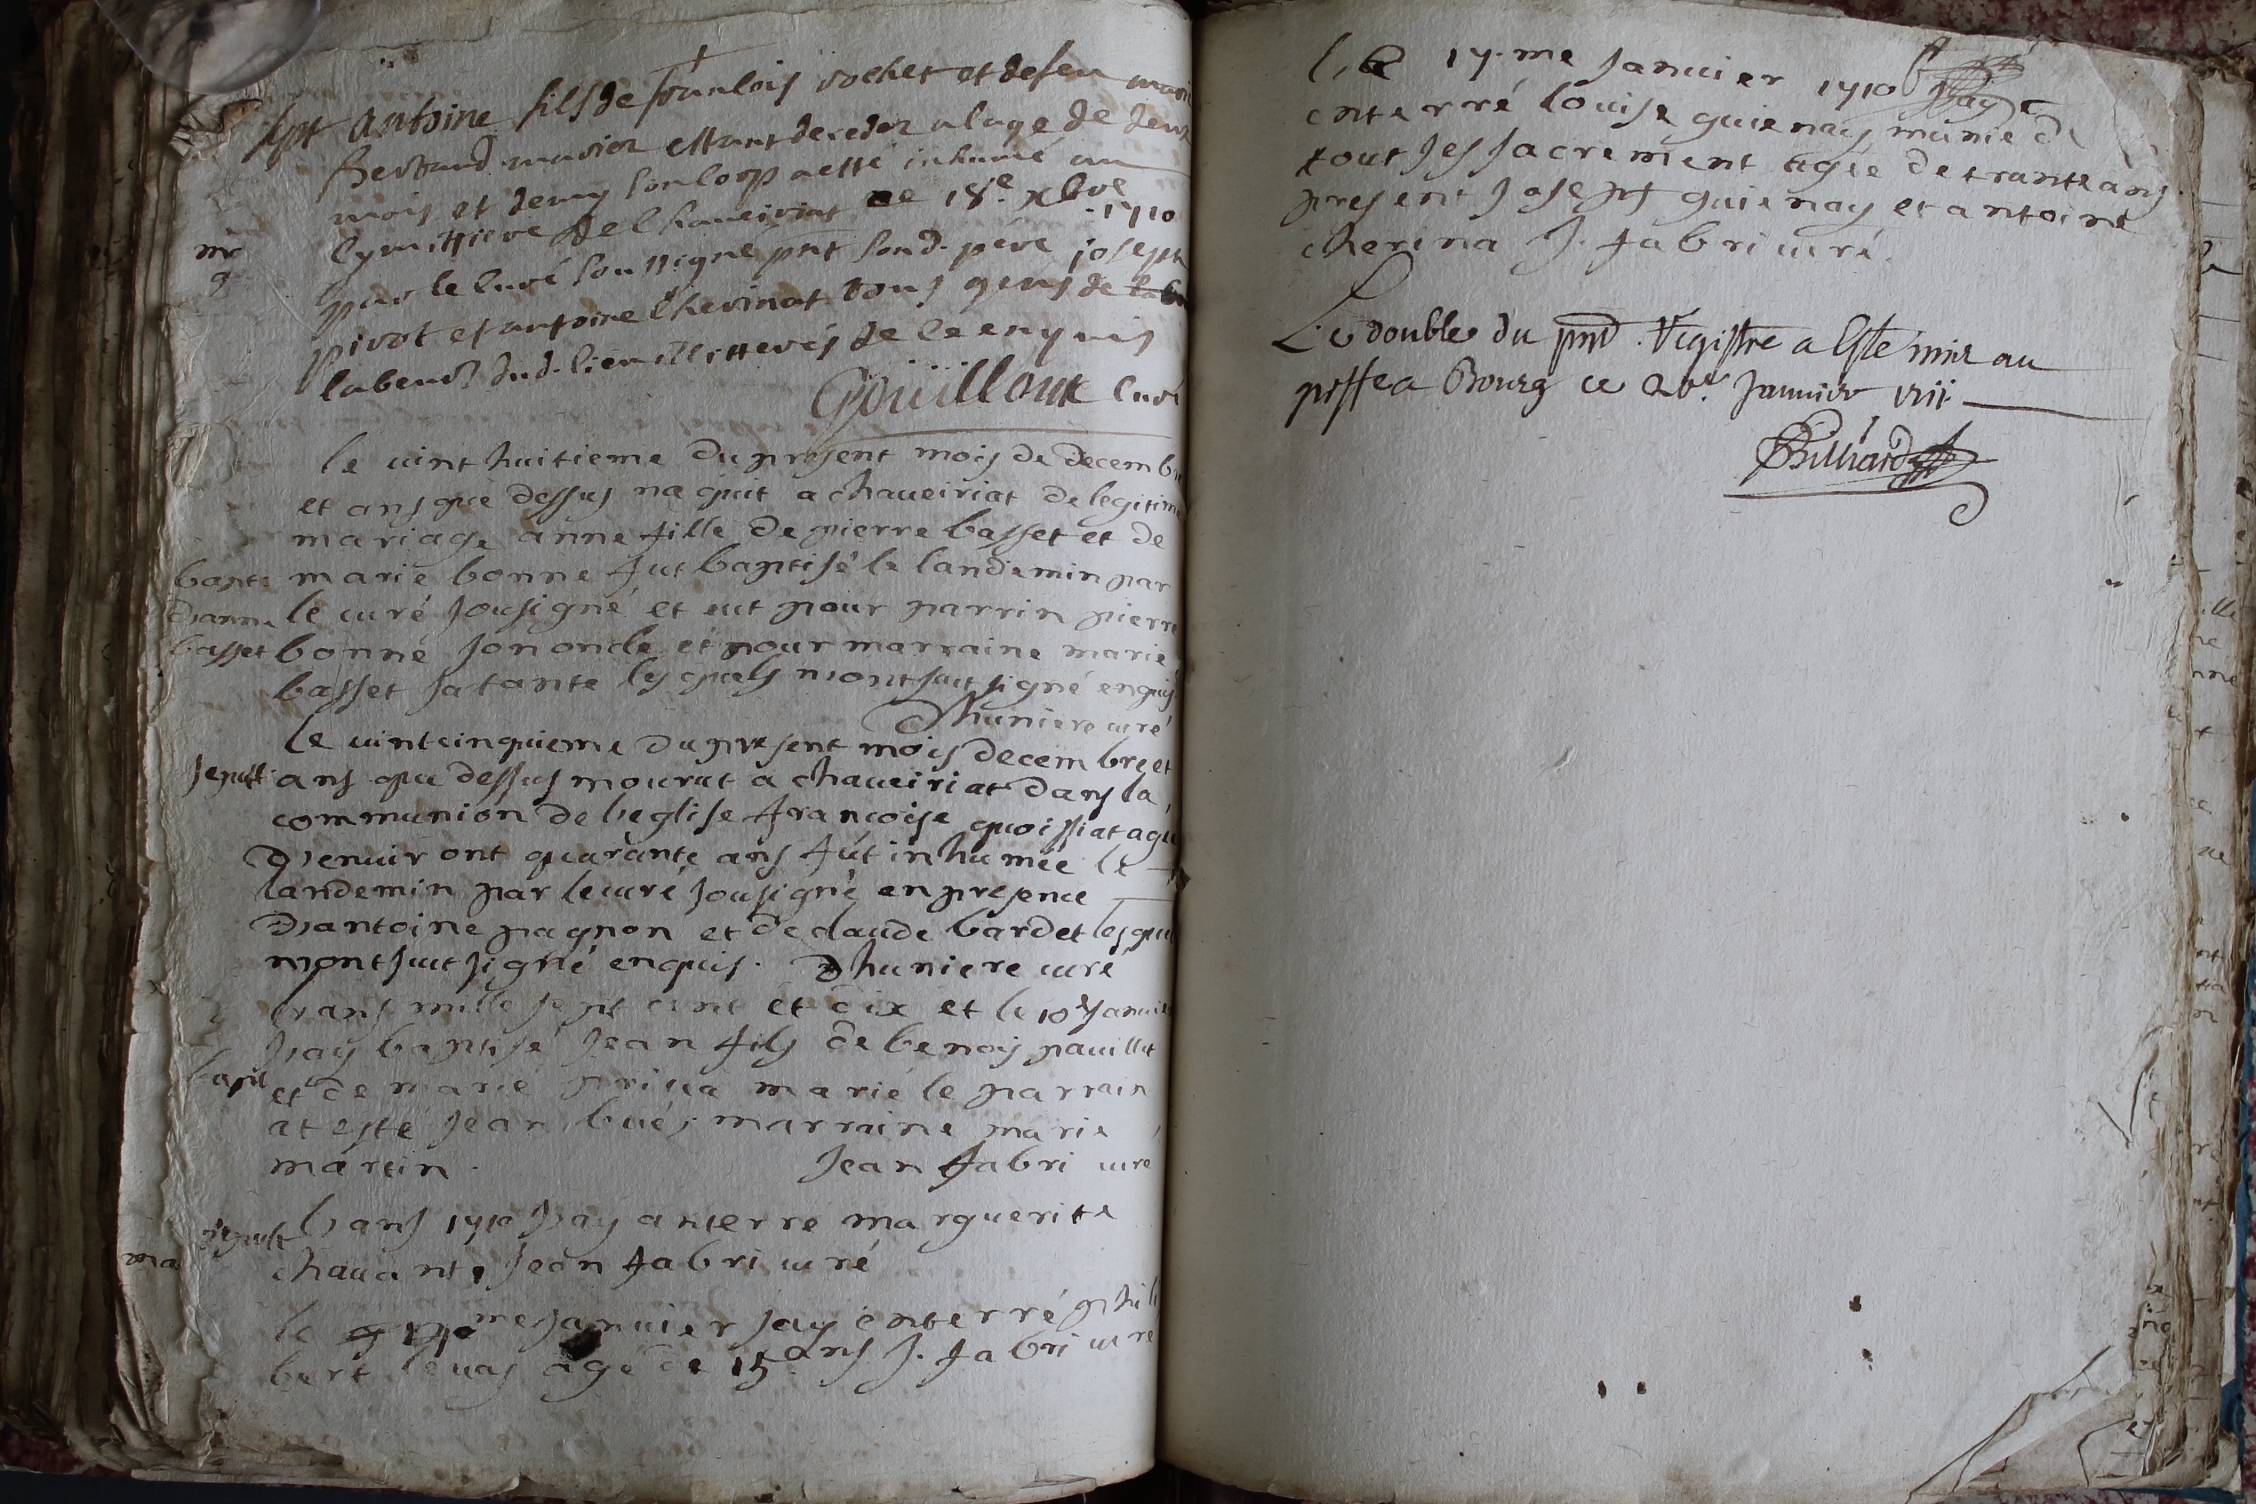 sept Antoine fils de françois rochet et de feu marie
Bertrand mariez estant decedez a lage de deux
mois et demy son corp a esté inhumé au
cymittiere de Chaveiriat ce 18e xbre 1710
par le curé soussigné pnt sond. père joseph
pivot et antoine Chevinat tous gens de
labeur dud. lieu illitterés de ce enquis
Gouilloux curé
le vint huitieme du present mois de decembre
et ans que dessus naquit a chaveiriat de legitime
mariage anne fille de pierre basset et de
bapt marie bonne fut baptisé le landemin par
danne le curé sousigné et eut pour parrin pierre
basset bonne son oncle et pour marraine marie
basset sa tante lesquels nont sut signé enquis
Dhuniere curé
le vintcinquieme du present mois decembre et
sepult ans que dessus mourut a chaveiriat dans la
communion de leglise francoise quoissiat agee
denviront quarante ans fut inhumée le
landemin par le curé sousigné en presence
dantoine pagnon et de claude bardet lesquels
nont sut signé enquis. Dhuniere curé
lans mille sept cent et dix et le 10e Janvier
Jay baptisé Jean fils de benoy pauillet
bapt et de marie marié le parrain
at esté Jean bués marraine marie
martin. Jean fabri curé
sepult Lans 1710 Jay anterré marguerite
ma
chavant, Jean fabri curé
le me Janvier Jay enterré phili
bert levas agé de 15 ans J. fabri curé
le 17.me Janvier 1710 Jay
enterré louise guienay munie de
tout ses sacrement agée de trante ans
present Joseph guienay et antoine
cherina J. fabri curé.
Le double du pnt Registre a Esté mis au
greffe a Bourg ce Janvier 1711
Billiard